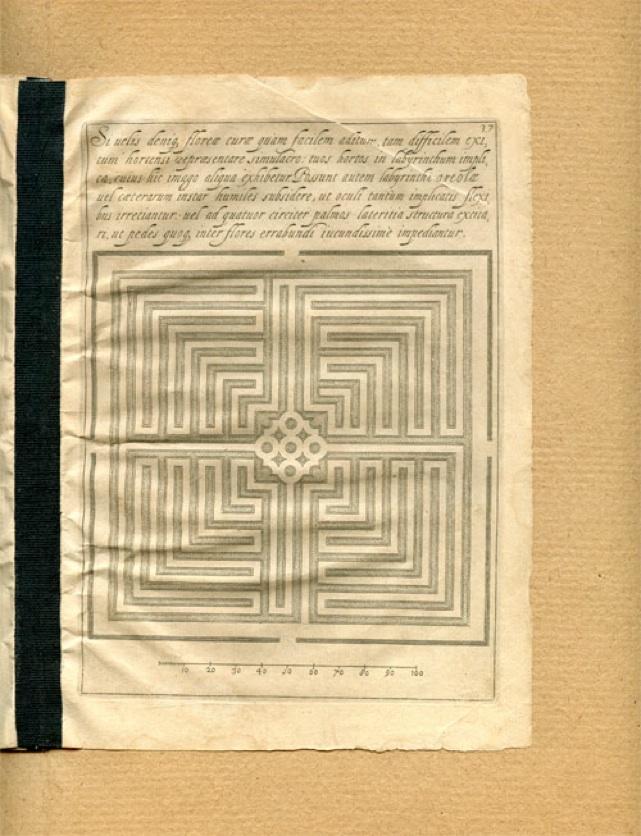 37
Si uelis deniq, floreæ curæ quàm facilem aditum, tam difficilem exi,
tum hortensi repræsentare simulacro: tuos hortos in labyrinthum impli,
ca, cuius hic imago aliqua exhibetur. Possunt autem labyrinthi areolæ
uel cæterarum instar humiles subsidere, ut oculi tantùm implicatis flexi,
bus irretiantur: uel ad quatuor circiter palmos lateritia structura excita,
ri, ut pedes quoq, inter flores errabundi iucundissimè impediantur.
10 20 30 40 50 60 70 80 90 100